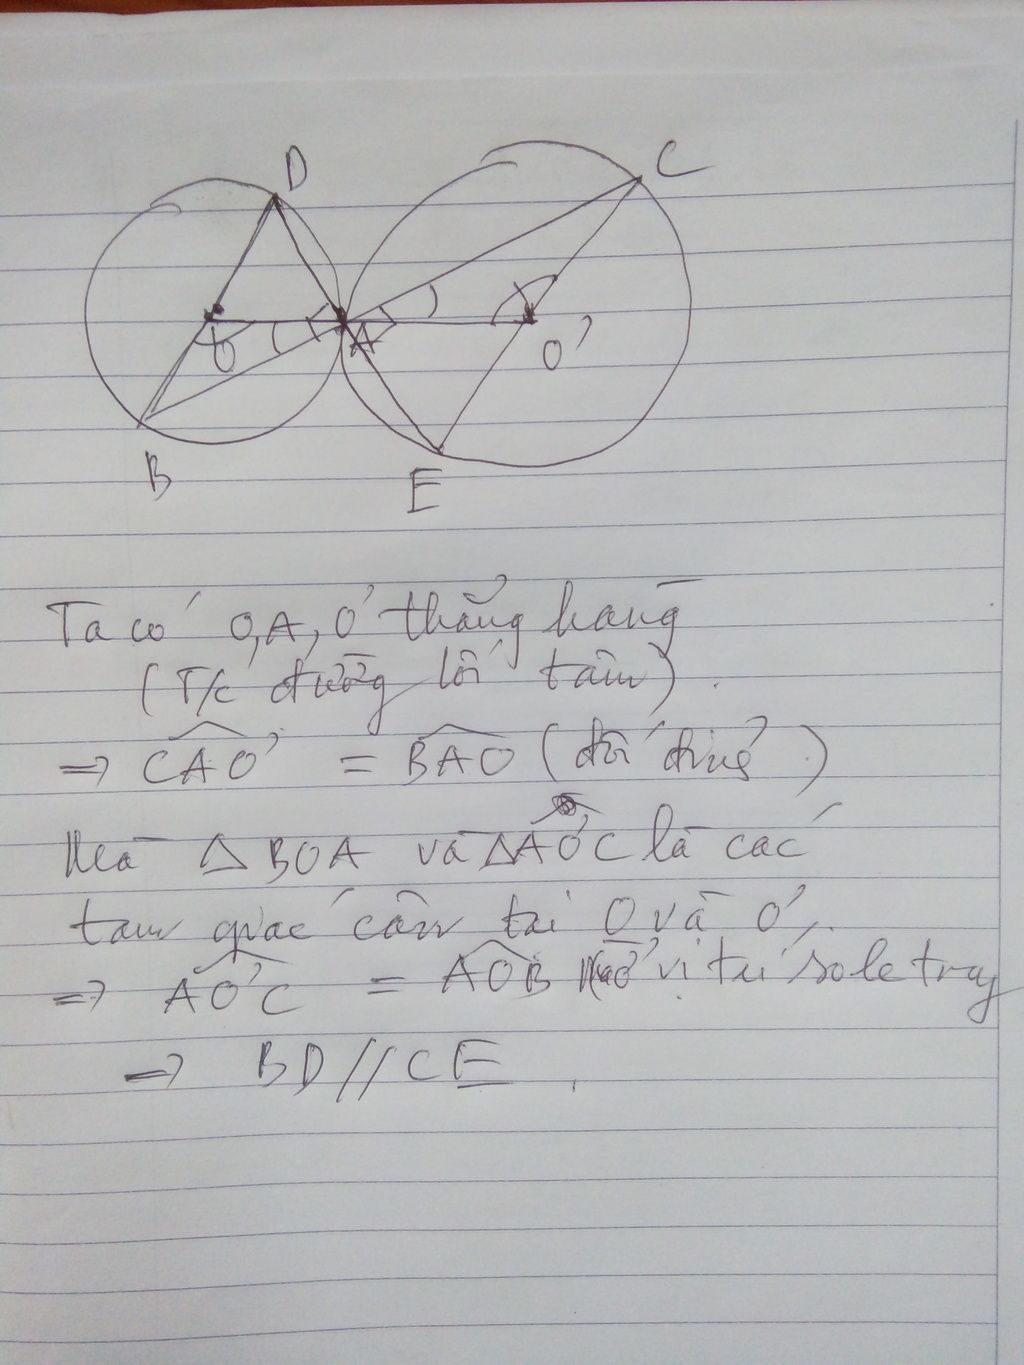 D
C
O
A
O'
B
E
Ta có O, A, O' thẳng hàng
(T/c đường lối tâm).
=> CAO' = BAO (đối đỉnh)
Mà △BOA và △AO'C là các
tam giác cân tại O và O'.
=> AO'C = AOB Mà ở vị trí sole trong
=> BD // CE.